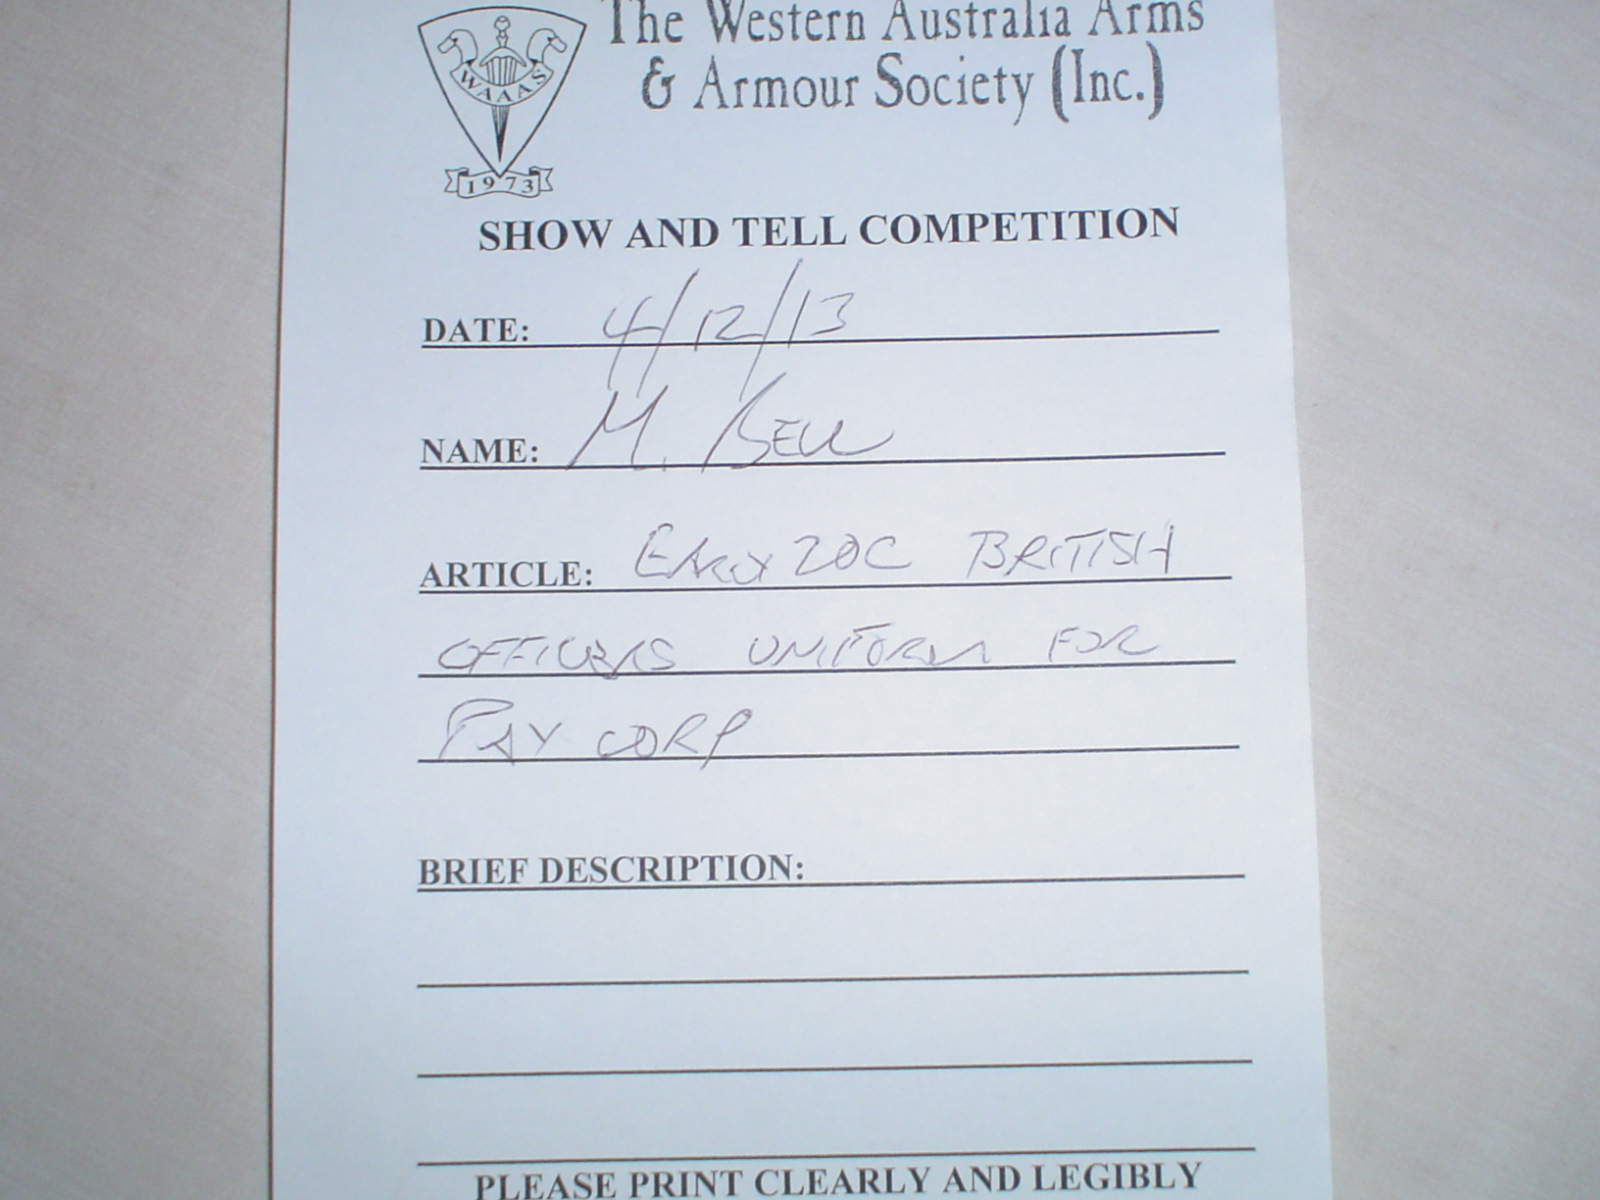 The Western Australia Arms
& Armour Society (Inc.)
WAAAS
1973
SHOW AND TELL COMPETITION
DATE: 4/12/13
NAME: M. BELL
ARTICLE: EARLY 20C BRITISH
OFFICERS UNIFORM FOR
PAY CORP
BRIEF DESCRIPTION:
PLEASE PRINT CLEARLY AND LEGIBLY